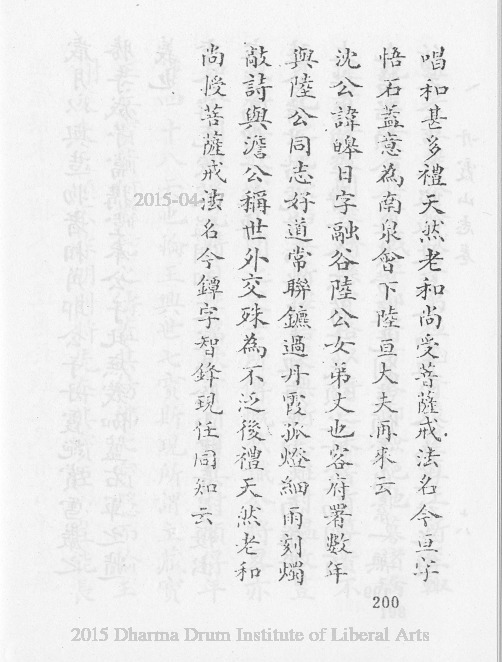 唱和甚多禮天然老和尚受菩薩戒法名今亘字
悟石蓋意為南泉會下陸亘大夫再來云
沈公諱皞日字融谷陸公女弟丈也客府署數年
與陸公同志好道常聯鑣過丹霞孤燈細雨刻燭
敲詩與澹公稱世外交殊為不泛後禮天然老和
尚授菩薩戒法名今鐔字智鋒現任同知云
200
2015 Dharma Drum Institute of Liberal Arts